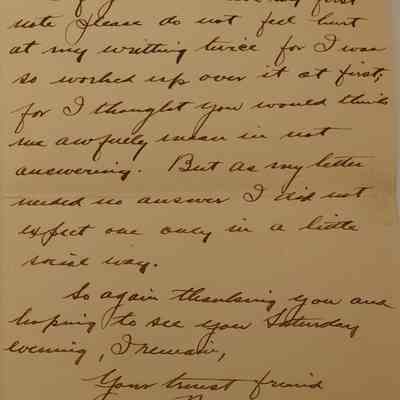 first
note Please do not feel hurt
at my writting twice for I was
so worked up over it at first;
for I thought you would think
me awfuly mean in not
answering. But as my letter
needed no answer I did not
expect one only in a little
social way.
So again thanking you and
hoping to see you Saturday
evening, I remain,
Your truest friend